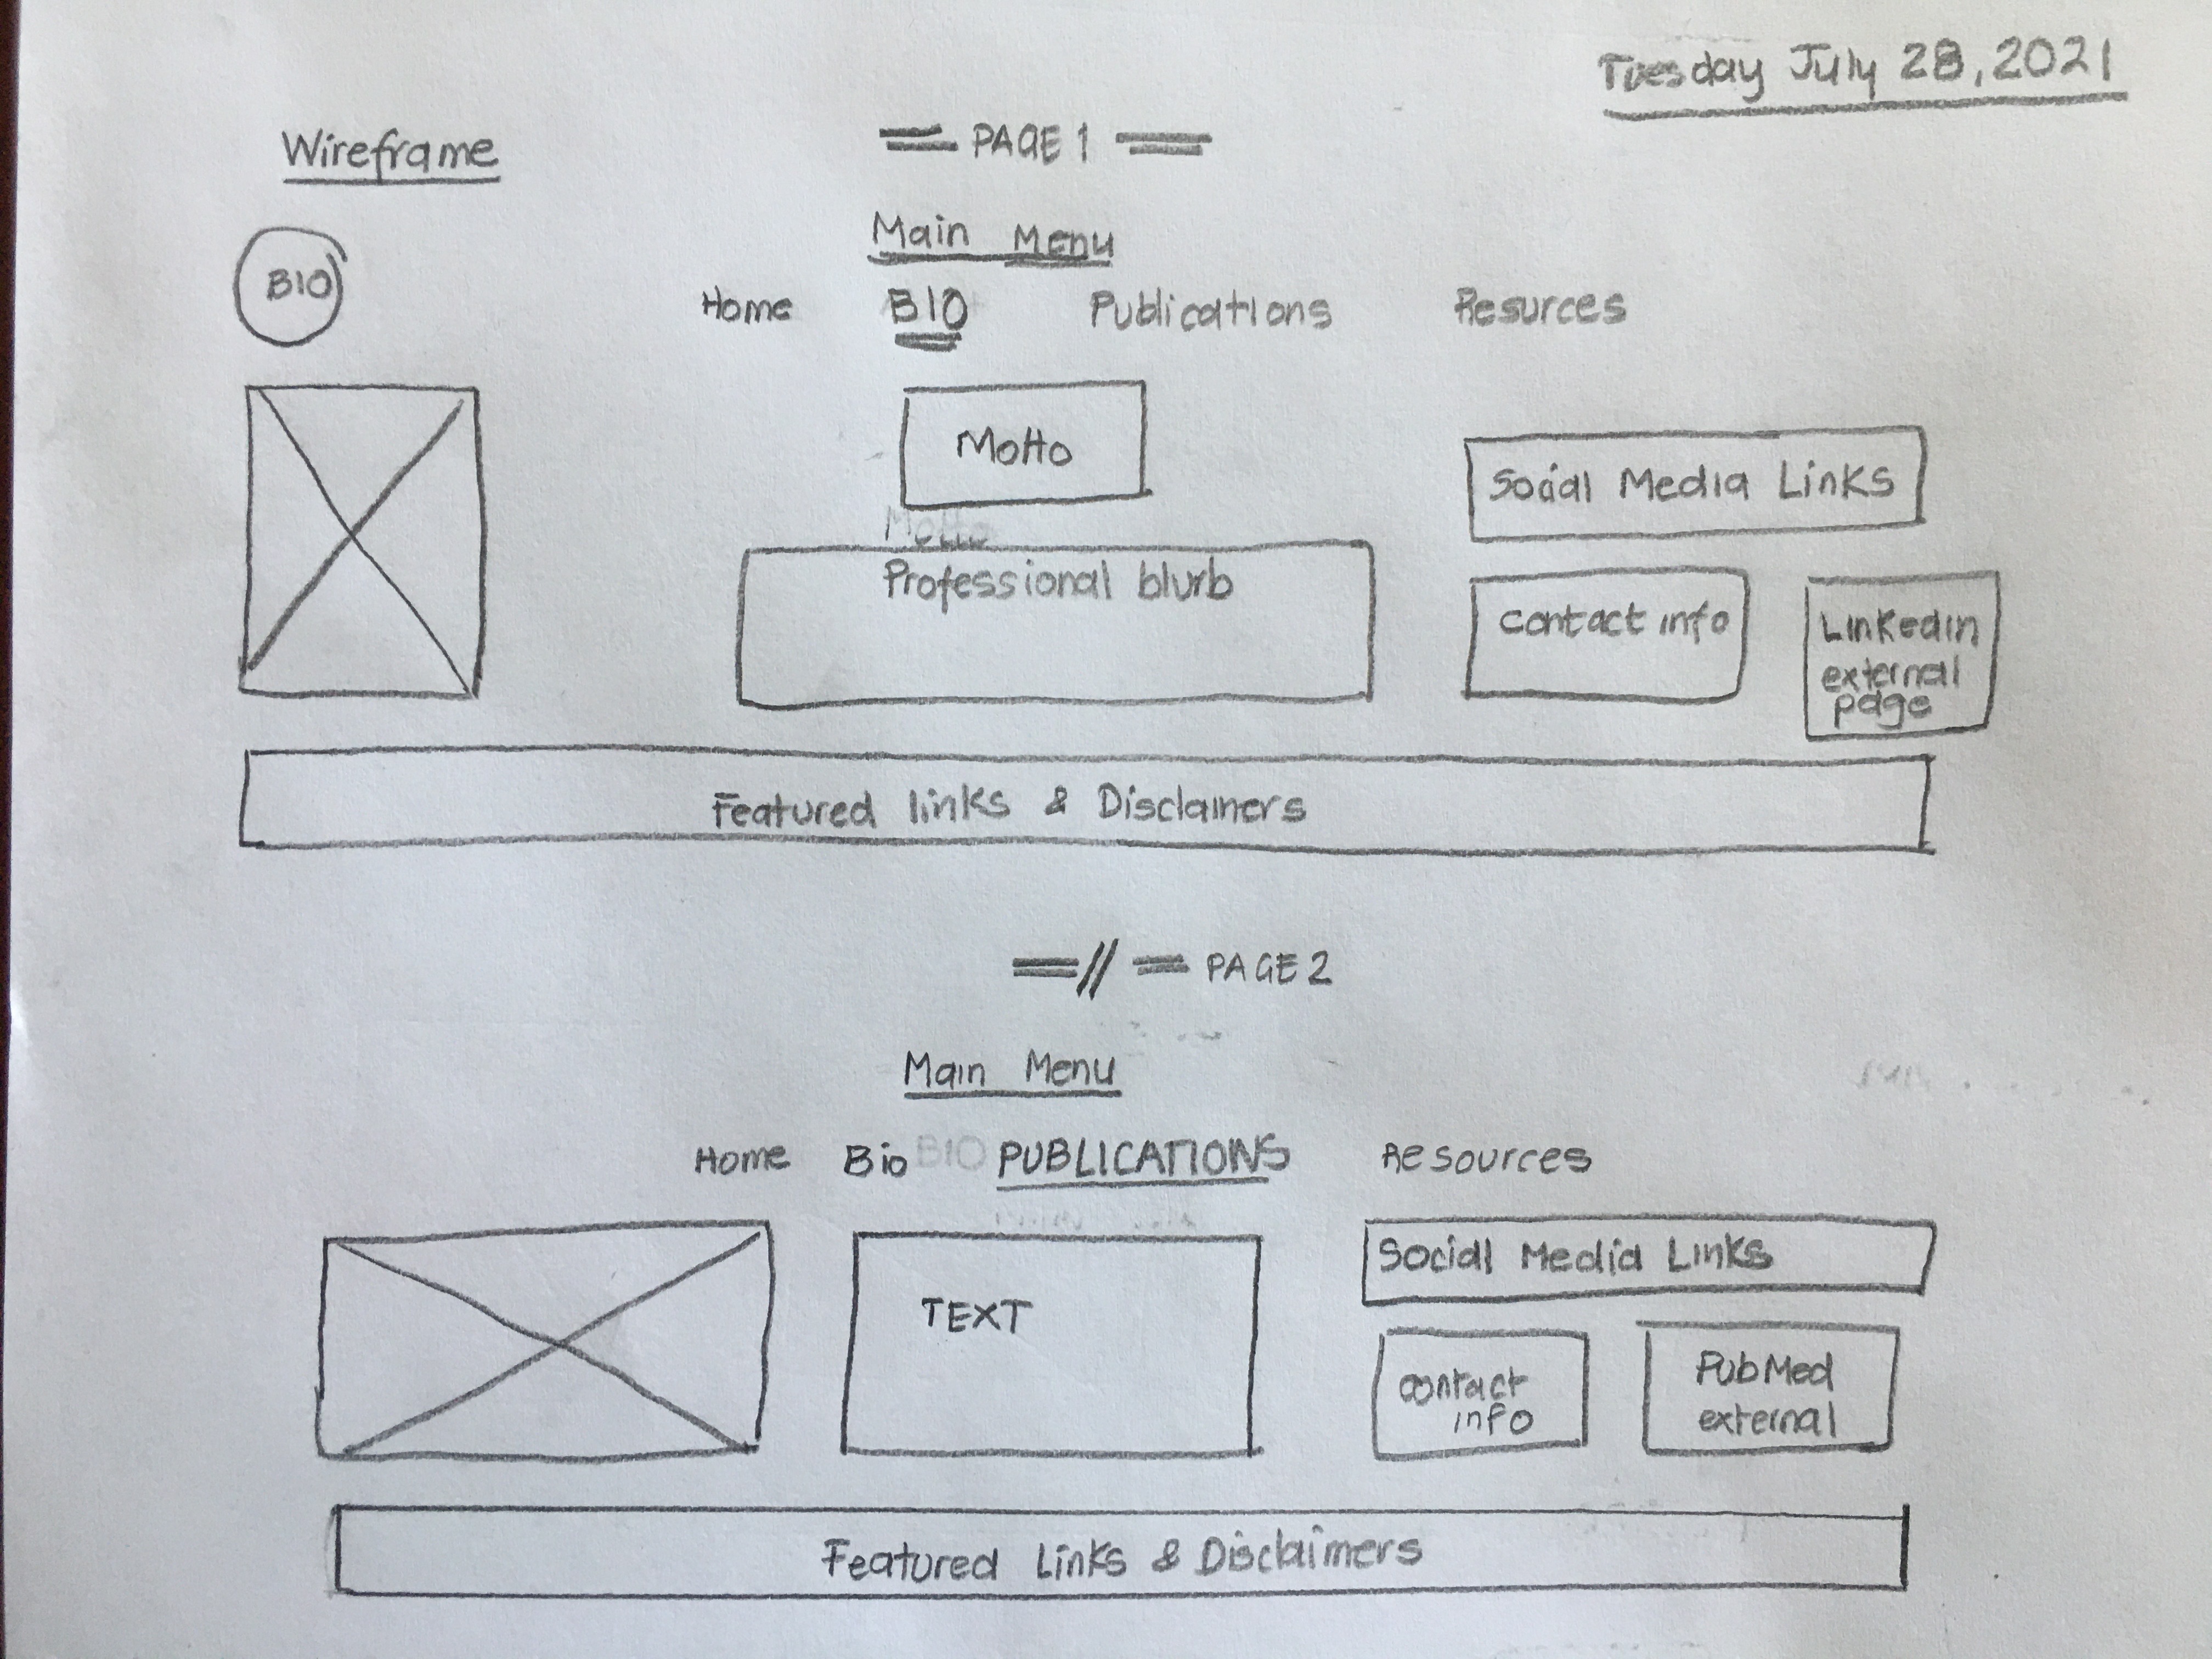 Tuesday July 28, 2021
Wireframe
PAGE 1
Main Menu
BIO
Home BIO Publications Resurces
Motto
Social Media Links
Motto
Professional blurb
Contact info
Linkedin
external
page
Featured links & Disclaimers
PAGE 2
Main Menu
Home Bio BIO PUBLICATIONS Resources
TEXT
Social Media Links
contact
info
PubMed
external
Featured Links & Disclaimers